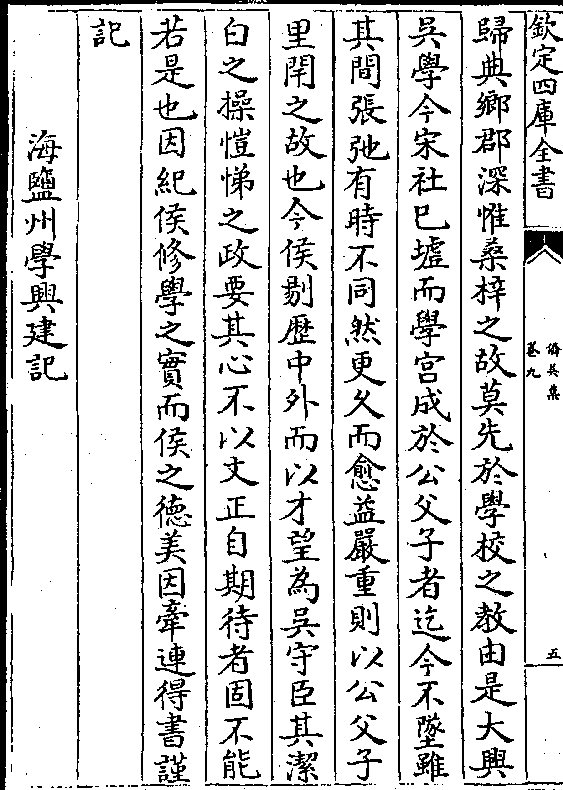 欽定四庫全書
僑吳集
卷九
五
歸典鄉郡深惟桑梓之故莫先於學校之教由是大興
吳學今宋社已墟而學宮成於公父子者迄今不墜雖
其間張弛有時不同然更久而愈益嚴重則以公父子
里閈之故也今侯剔歷中外而以才望為吳守臣其潔
白之操愷悌之政要其心不以文正自期待者固不能
若是也因紀侯修學之實而侯之德美因牽連得書謹
記
海鹽州學興建記